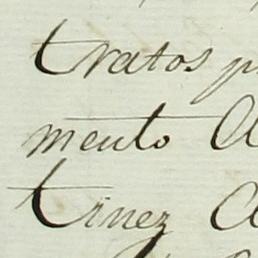 tratos p
mento A
tinez A